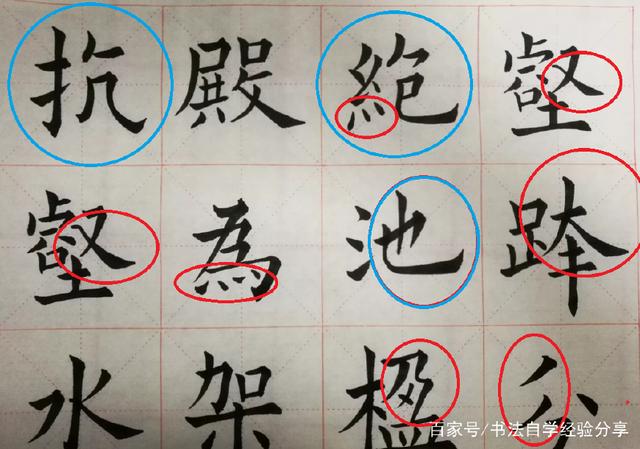 抗殿絶壑
壑為池跨
水架楹分
百家号/书法自学经验分享